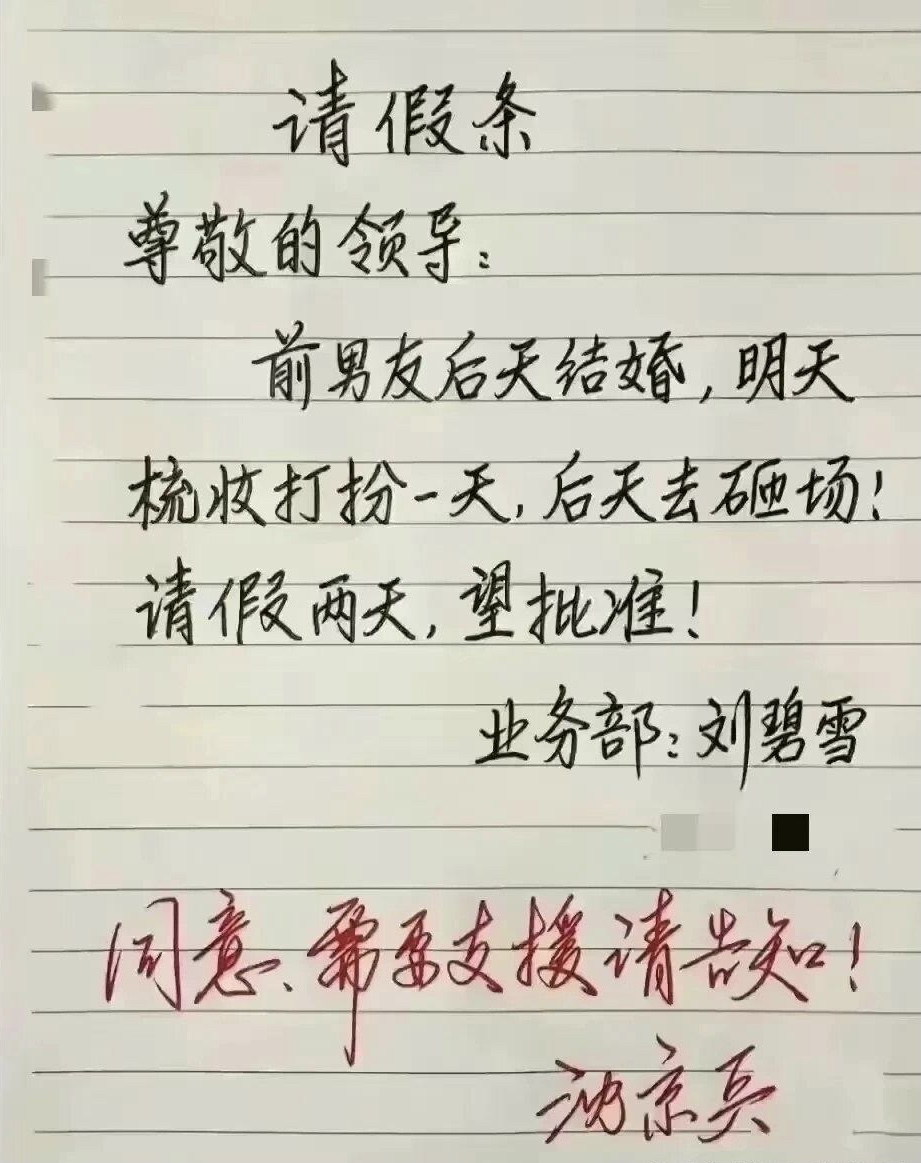 请假条
尊敬的领导：
前男友后天结婚，明天
梳妆打扮一天，后天去砸场！
请假两天，望批准！
业务部：刘碧雪
同意、需要支援请告知！
沈京兵